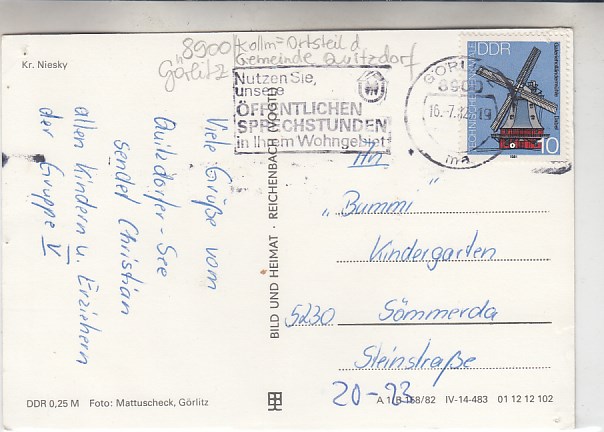 Kr. Niesky
8900 Kollm = Ortsteil d.
Görlitz Gemeinde Quitzdorf
Nutzen Sie,
unsere
ÖFFENTLICHEN
SPRECHSTUNDEN
in Ihrem Wohngebiet
GÖRLITZ
8900
16.-7.82-19
ma
DDR
10
Viele Grüße vom
Quitzdorfer-See
sendet Christian
allen Kindern u. Erziehern
der Gruppe V.
BILD UND HEIMAT · REICHENBACH (VOGTL)
An
"Bummi"
Kindergarten
5230 Sömmerda
Steinstraße
20-23
DDR 0,25 M Foto: Mattuscheck, Görlitz
A 1/B 158/82 IV-14-483 01 12 12 102